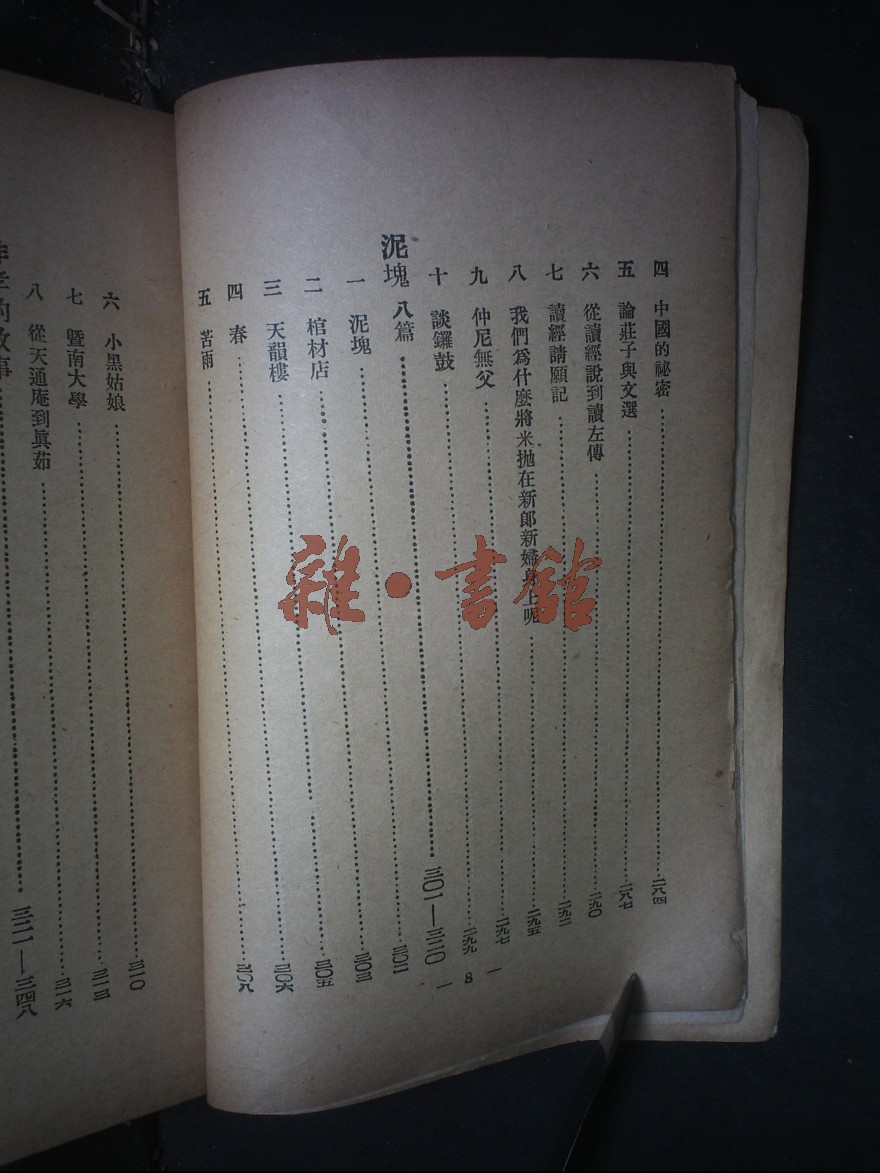 四　中國的祕密……二八四
五　論莊子與文選……二八七
六　從讀經說到讀左傳……二九〇
七　讀經請願記……二九二
八　我們爲什麼將米拋在新郎新婦身上呢……二九五
九　仲尼無父……二九七
十　談鑼鼓……二九九
泥塊 八篇……三〇一—三二〇
一　泥塊……三〇二
二　棺材店……三〇三
三　天韻樓……三〇五
四　春……三〇六
五　苦雨……三〇八
— 8 —
六　小黑姑娘……三一〇
七　暨南大學……三一三
八　從天通庵到眞茹……三一六
的故事……三二一—三四八
雜·書館